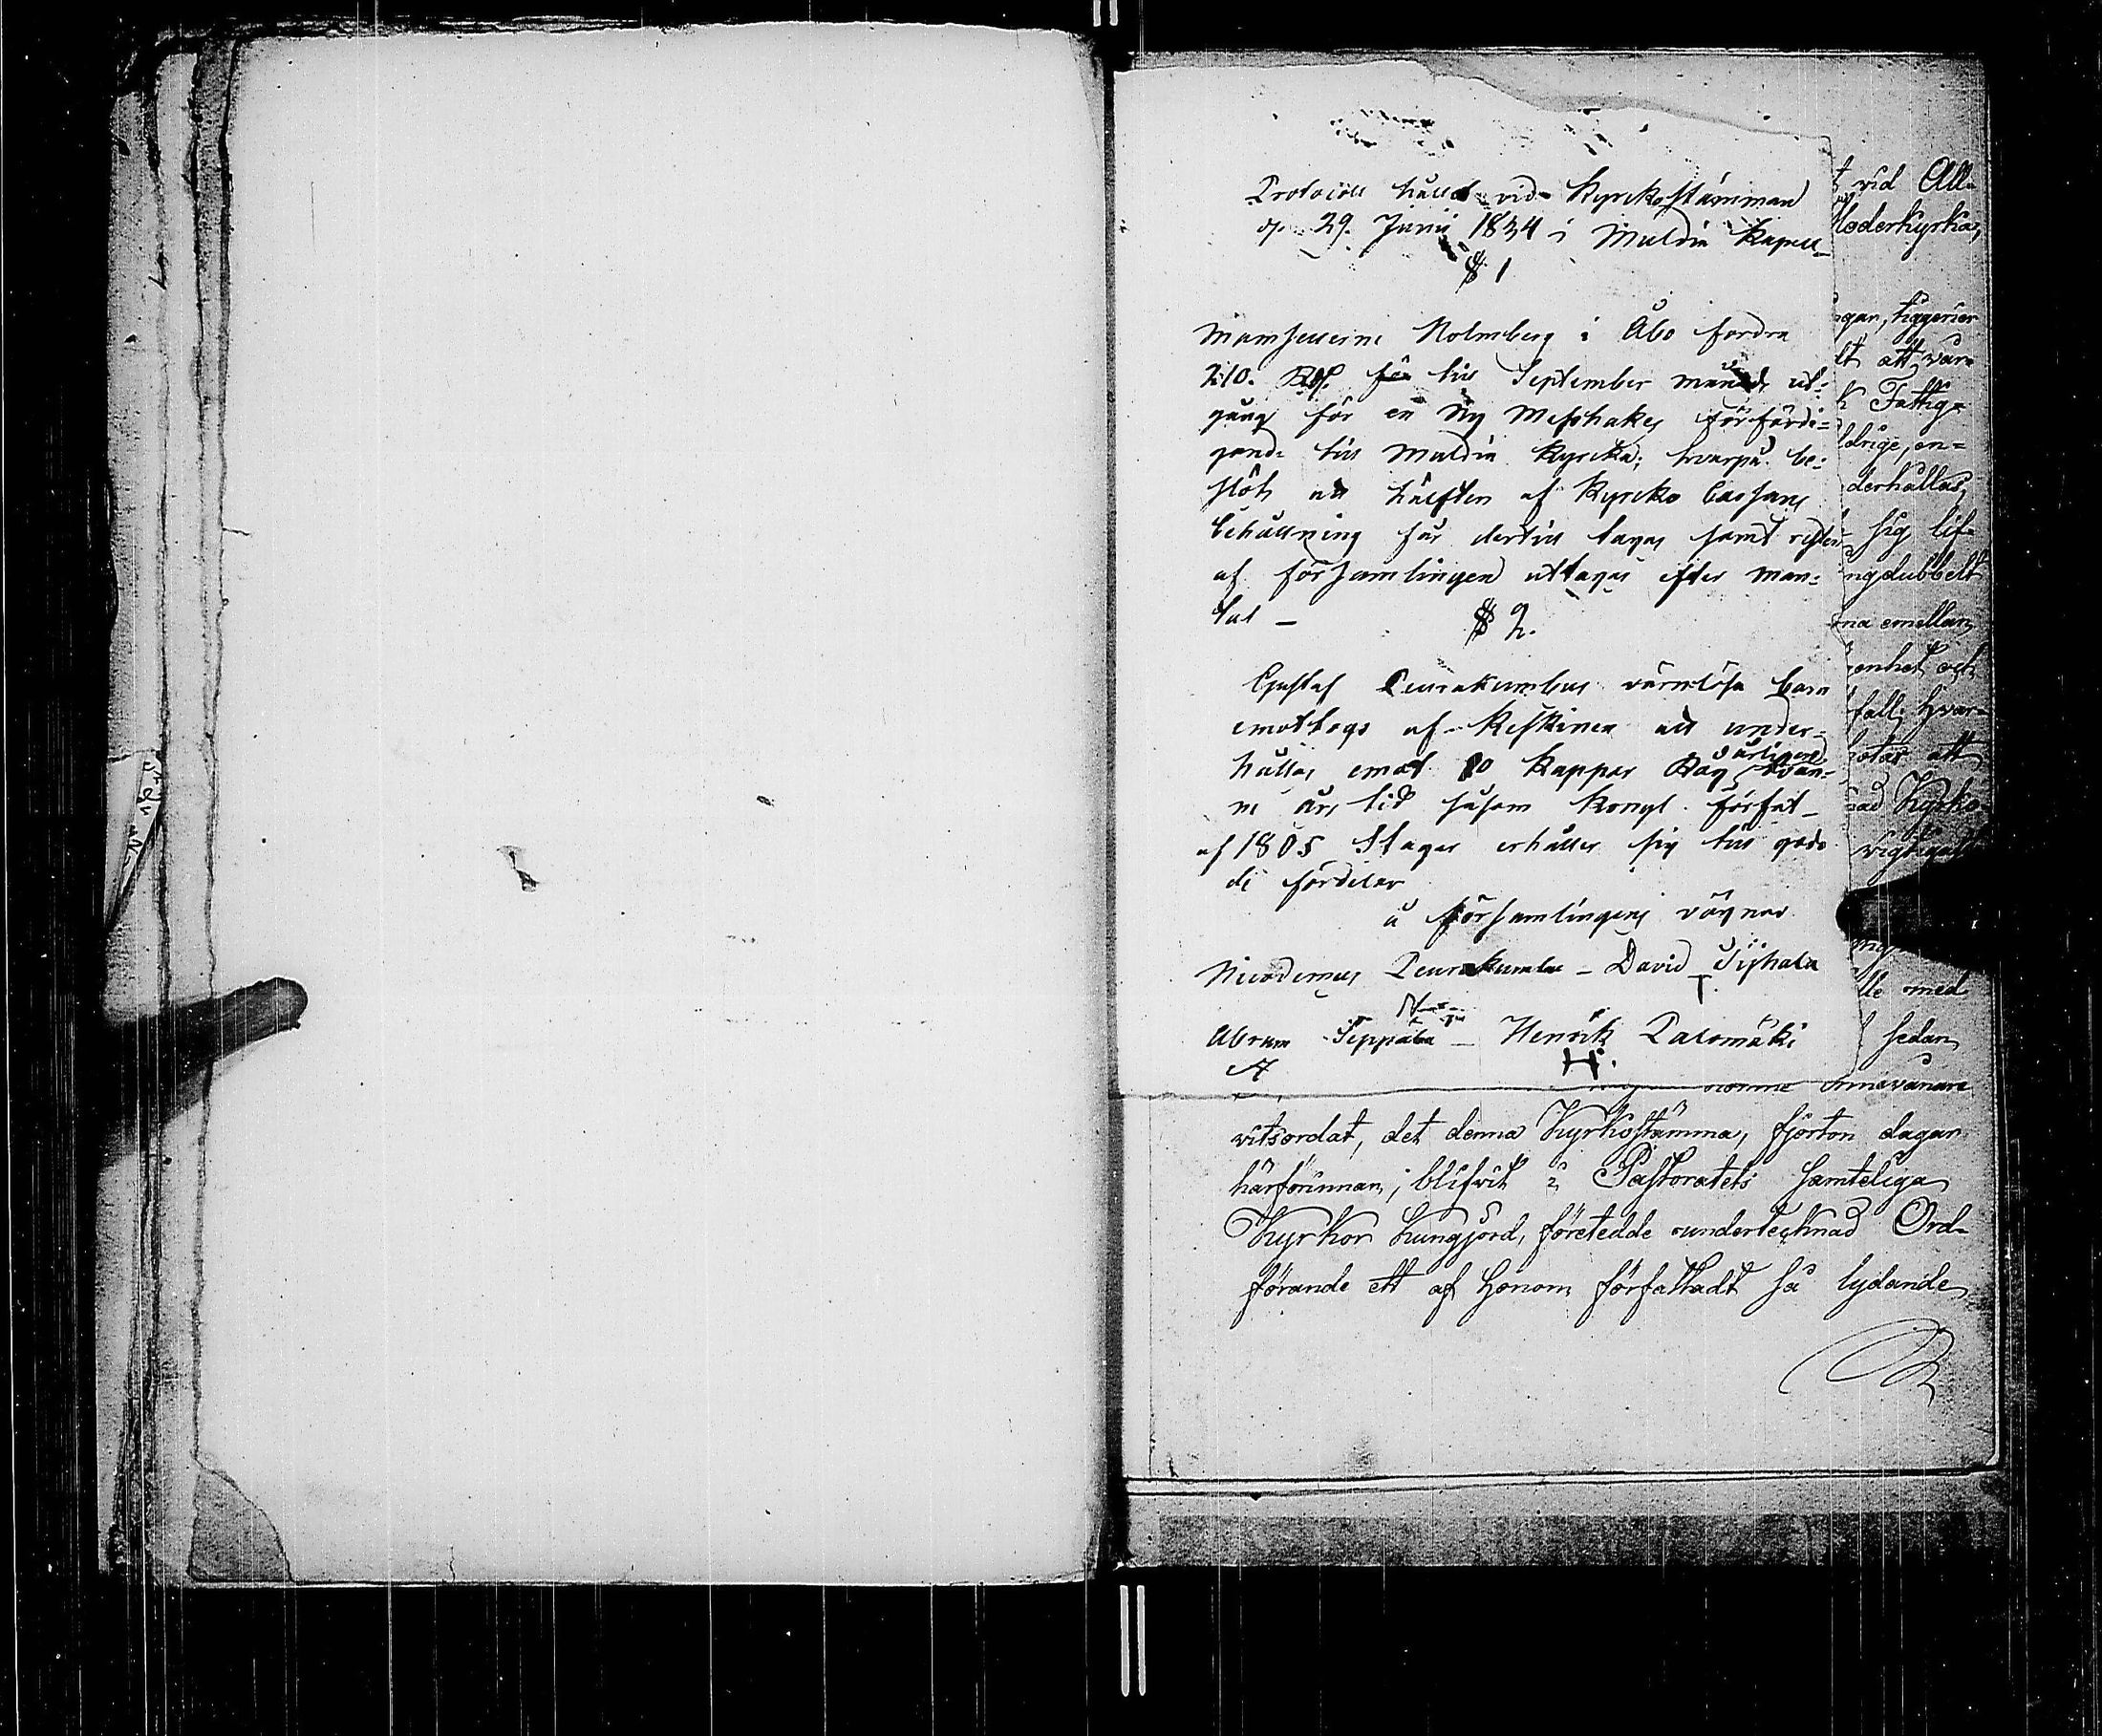 Protocoll hållet vid Kyrckostämman
d. 29. Junii 1834 i Muldia Kapell
§ 1
Mamsellerne Holmberg i Åbo fordra
210. Rdr. för till September månads ut-
gång för en Ny Messhakes förfärdi-
gande till Muldia Kyrcka; hvarpå be-
slöts att hälften af Kyrcko Cassans
behållning får dertill tagas samt resten
af församlingen uttagas efter man-
tal –
§ 2.
Gustaf Peurakumbus värnlösa barn
emottogs af Keskinen att under-
hållas emot 10 kappar Råg årligen
års tid såsom Kongl. Förfat-
af 1805 Stagar erhåller sig till godo
de fördelar
å församlingens vägnar
Nicodemus Peurakumbu – David Sijhala
T
Abram Seppälä – Henrik Palomäki
A H.
t vid All-
Moderkyrkan,
ngar, tiggerier
lt att vår-
k Fattig-
ldrige, en-
derhållas,
sig lif-
ngdubbelt
na emellan,
enhet och
fall; hvar-
hotas att
nad Kyrko-
vigtigast
lle med
sedan
somme Innevånare
vitsordat, det denna Kyrkostämma, fjorton dagar
härförinnan, blifvit i Pastoratets samteliga
Kyrkor kungjord, företedde undertecknad Ord-
förande ett af honom författadt så lydande